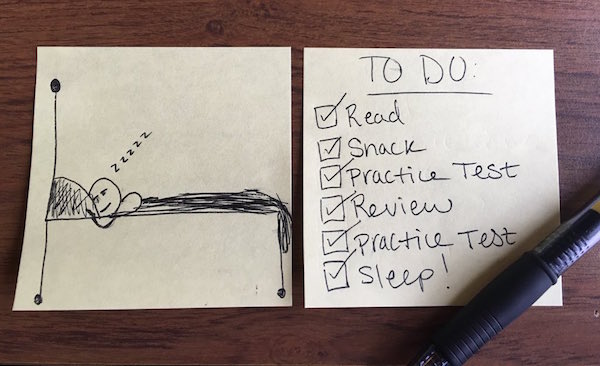 zzzzz
TO DO:
Read
Snack
Practice Test
Review
Practice Test
Sleep!